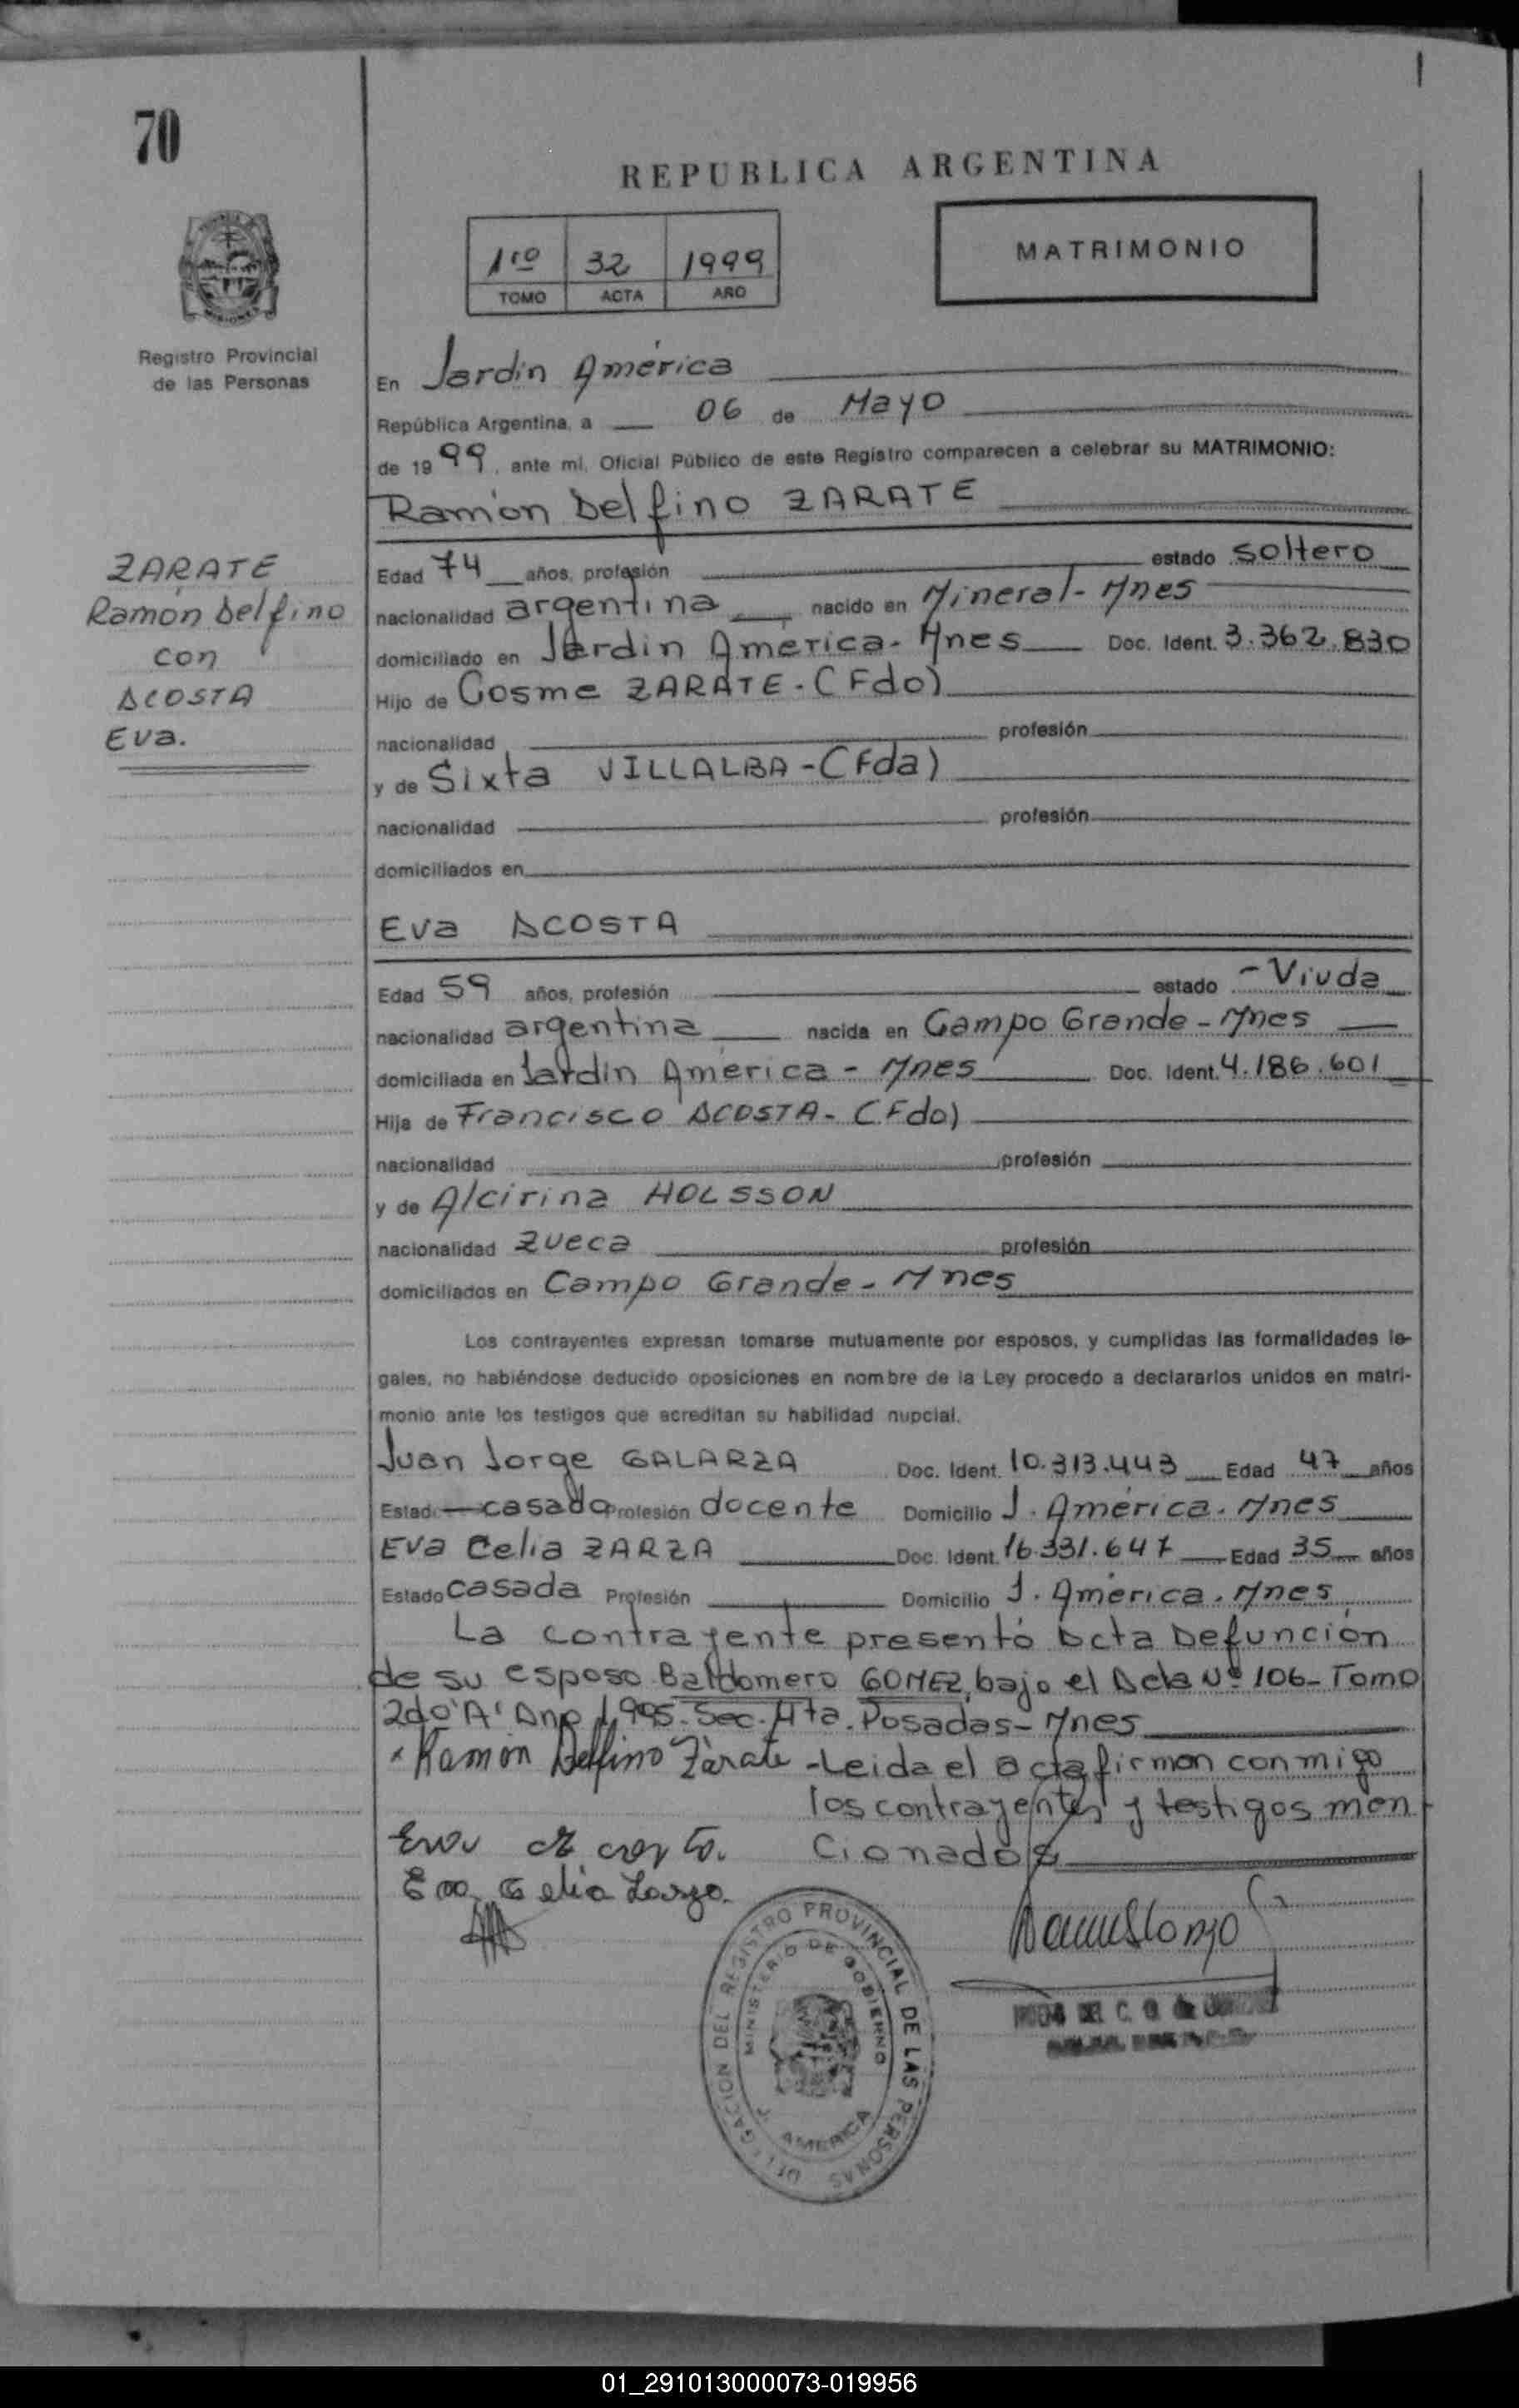 70
REPUBLICA ARGENTINA
1ro 32 1999
TOMO ACTA AÑO
MATRIMONIO
Registro Provincial
de las Personas
En Jardín América
República Argentina, a 06 de Mayo
de 1999, ante mí, Oficial Público de este Registro comparecen a celebrar su MATRIMONIO:
Ramón Delfino ZARATE
ZARATE
Ramón Delfino
con
ACOSTA
Eva.
Edad 74 años, profesión estado soltero
nacionalidad argentina nacido en Mineral - Mnes
domiciliado en Jardín América - Mnes Doc. Ident. 3.362.830
Hijo de Cosme ZARATE - (Fdo)
nacionalidad profesión
y de Sixta VILLALBA - (Fda)
nacionalidad profesión
domiciliados en
Eva ACOSTA
Edad 59 años, profesión estado - Viuda
nacionalidad argentina nacida en Campo Grande - Mnes
domiciliada en Jardín América - Mnes Doc. Ident. 4.186.601
Hija de Francisco ACOSTA - (Fdo)
nacionalidad profesión
y de Alcirina HOLSSON
nacionalidad Zueca profesión
domiciliados en Campo Grande - Mnes
Los contrayentes expresan tomarse mutuamente por esposos, y cumplidas las formalidades le-
gales, no habiéndose deducido oposiciones en nombre de la Ley procedo a declararlos unidos en matri-
monio ante los testigos que acreditan su habilidad nupcial.
Juan Jorge GALARZA Doc. Ident. 10.313.443 Edad 47 años
Estado casado Profesión docente Domicilio J. América - Mnes
Eva Celia ZARZA Doc. Ident. 16.331.647 Edad 35 años
Estado casada Profesión Domicilio J. América - Mnes
La contrayente presentó Acta Defunción
de su esposo Baldomero GOMEZ, bajo el Acta Nº 106 - Tomo
2do "A" Año 1.995 - Sec. 4ta. Posadas - Mnes
Ramón Delfino Zárate - Leida el acta firman conmigo
los contrayentes y testigos men
Eva Acosta. cionados
Eva Celia Zarza.
DELEGACION DEL REGISTRO PROVINCIAL DE LAS PERSONAS
MINISTERIO DE GOBIERNO
J. AMERICA
01_291013000073-019956